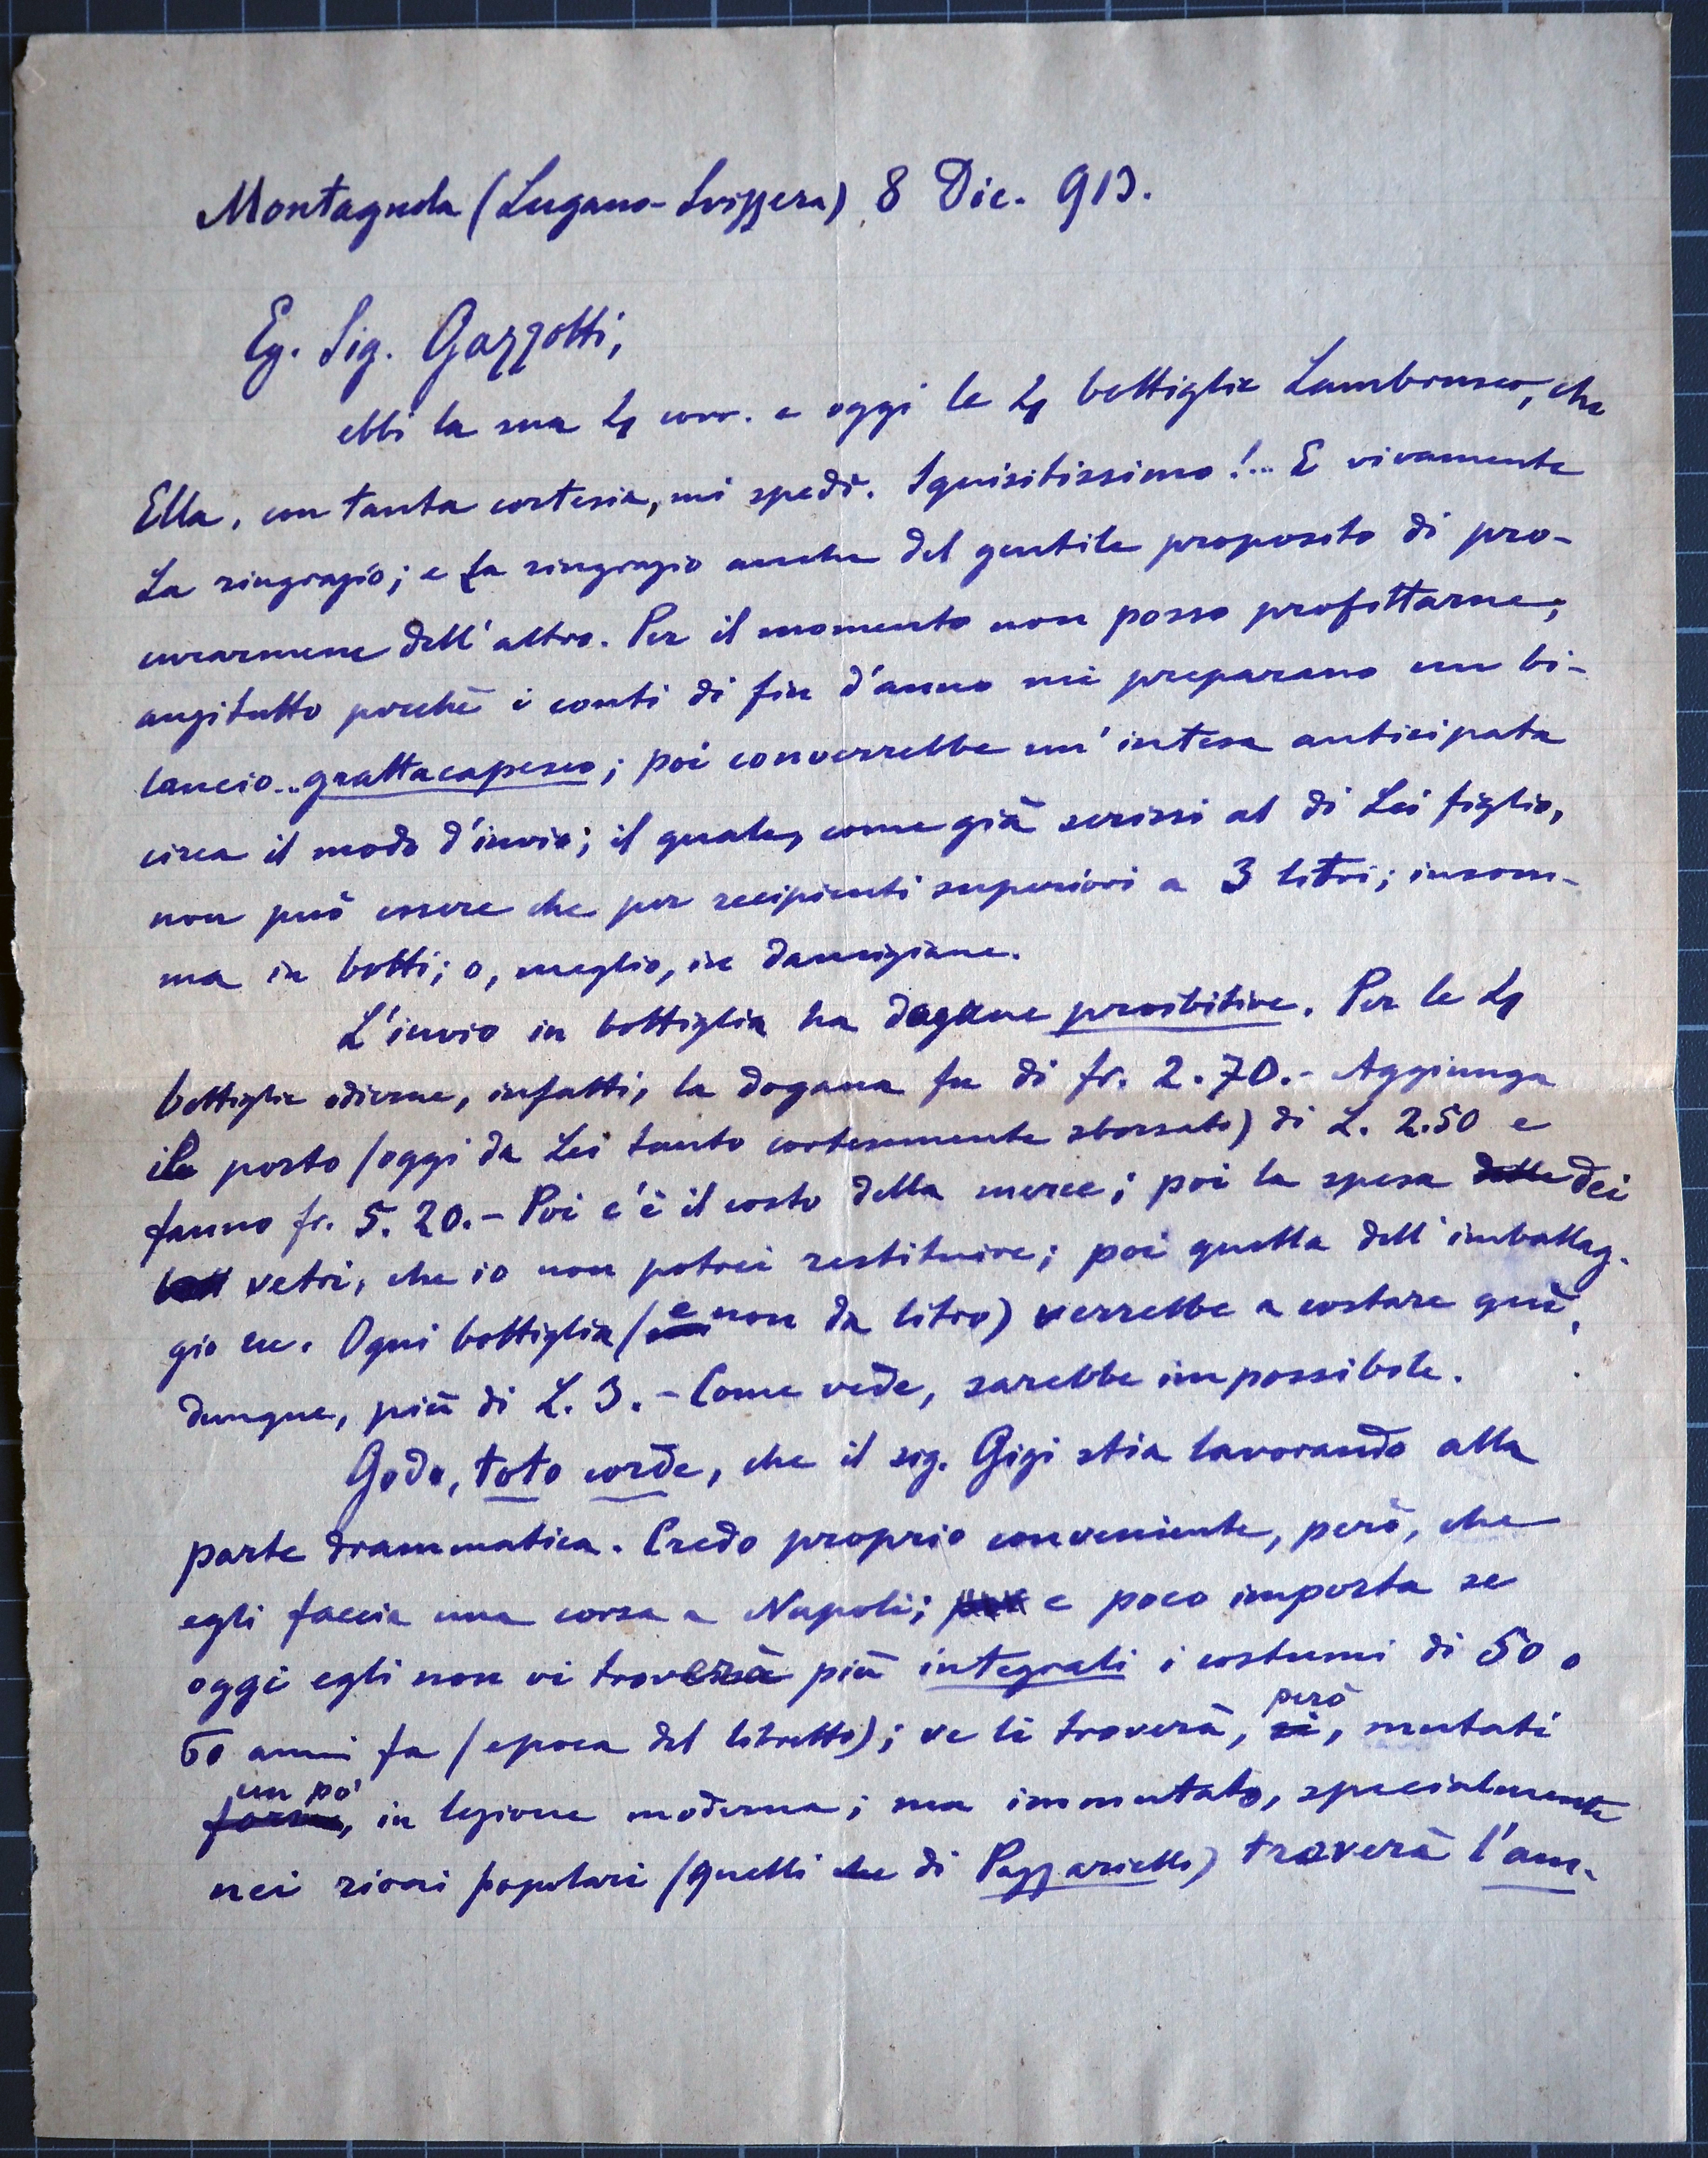 Montagnola (Lugano-Svizzera) 8 Dic. 913.
Eg. Sig. Gazzotti,
ebbi la sua 4 corr. e oggi le 4 bottiglie Lambrusco, che
Ella, con tanta cortesia, mi spedì. Squisitissimo!... E vivamente
La ringrazio; e La ringrazio anche del gentile proposito di pro-
curarmene dell'altro. Per il momento non posso profittarne;
anzitutto perchè i conti di fin d'anno mi preparano un bi-
lancio... grattacapesco; poi converrebbe un'intesa anticipata
circa il modo d'invio; il quale, come già scrissi al di Lei figlio,
non può essere che per recipienti superiori a 3 litri; insom-
ma in botti; o, meglio, in damigiane.
L'invio in bottiglia ha dogane proibitive. Per le 4
bottiglie odierne, infatti, la dogana fu di fr. 2.70.- Aggiunga
il porto (oggi da Lei tanto cortesemente sborsato) di L. 2.50 e
fanno fr. 5.20.- Poi c'è il costo della merce; poi la spesa delle dei
vetri, che io non potrei restituire; poi quella dell'imballag-
gio ecc. Ogni bottiglia (e non da litro) verrebbe a costare quì,
dunque, più di L. 3.- Come vede, sarebbe impossibile.
Godo, toto corde, che il sig. Gigi stia lavorando alla
parte drammatica. Credo proprio conveniente, però, che
egli faccia una corsa a Napoli; e poco importa se
oggi egli non vi troverà più integrali i costumi di 50 o
60 anni fa (epoca del libretto); ve li troverà, però sì, mutati
un po' forse, in lezione moderna; ma immutato, specialmente
nei rioni popolari (quelli che di Pazzariello) troverà l'am-